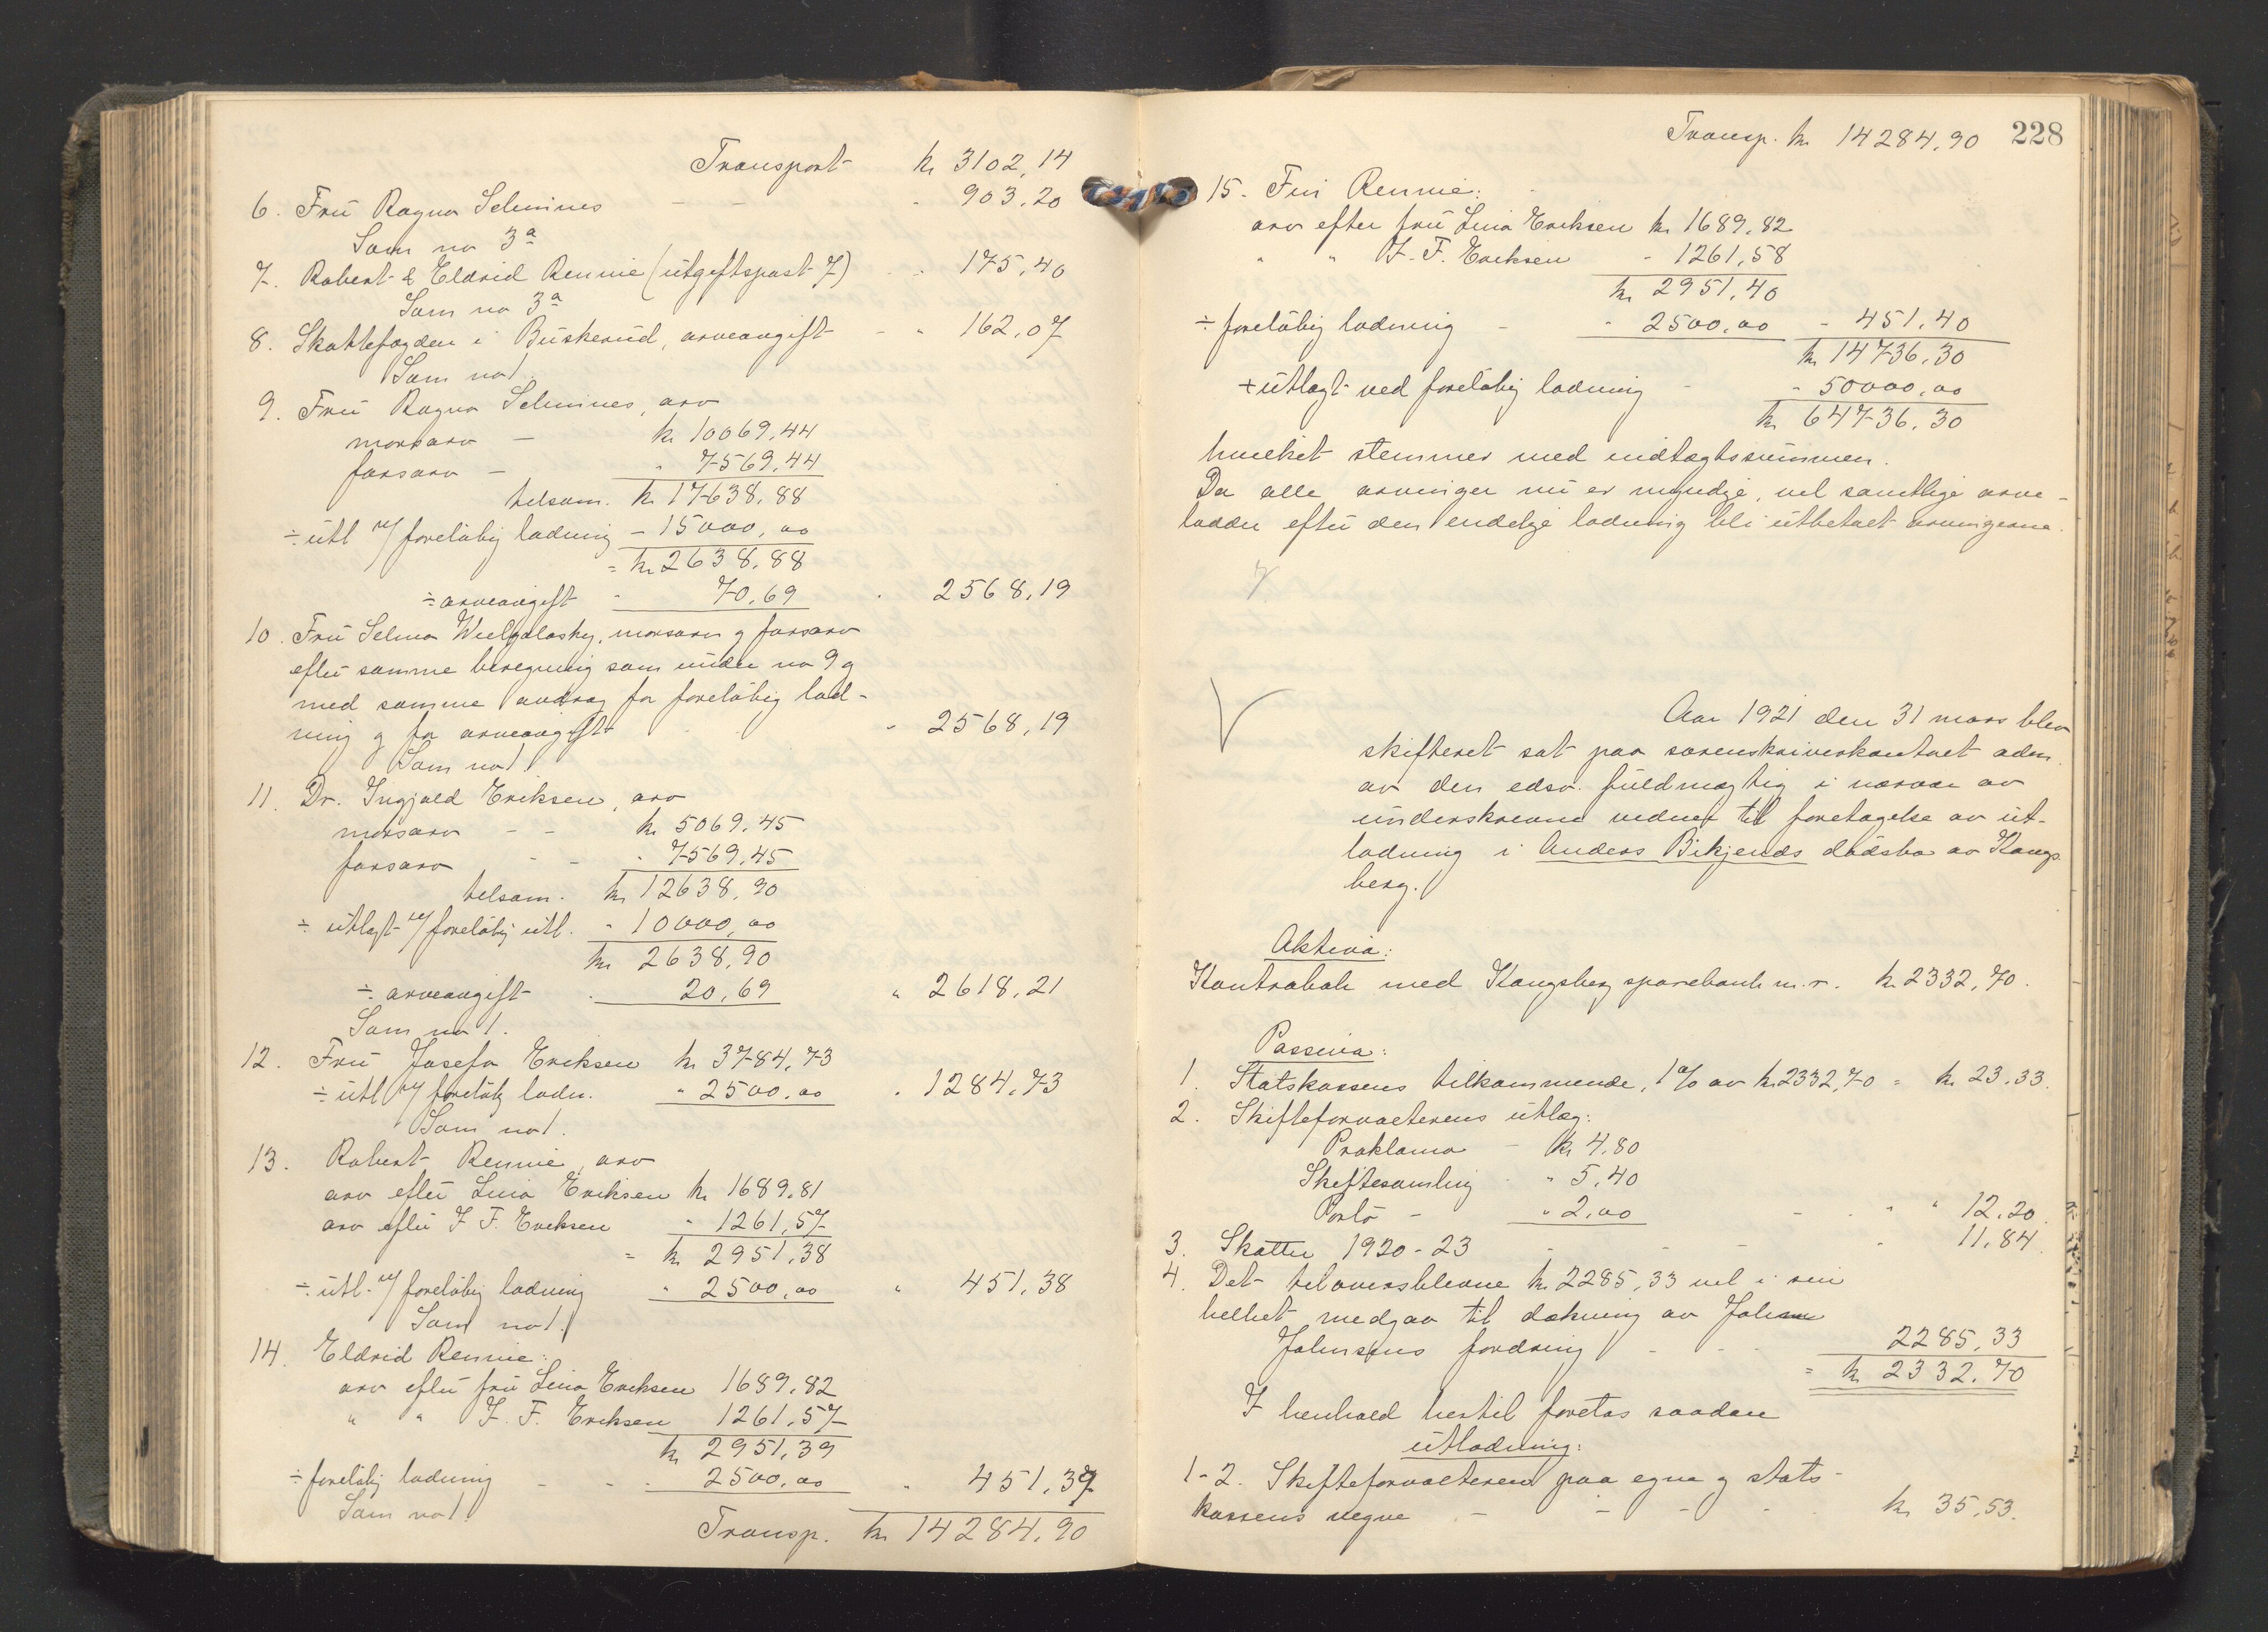 Transport kr 3102,14
6. Fru Ragna Selmines - - " 903,20
Som no 3a
7. Robert & Eldrid Rennie (utgiftspost 7) " 175,40
Som no 3a
8. Skattefogden i Buskerud, arveavgift - " 162,07
Som no 1.
9. Fru Ragna Selmines, arv
morsarv - kr 10069,44
farsarv - " 7569,44
tilsam. kr 17638,88
÷ utl v/ foreløbig lodning - 15000,00
= kr 2638,88
÷ arveavgift " 70,69 " 2568,19
10. Fru Selma Wielgolasky, morsarv og farsarv
efter samme beregning som under no 9 og
med samme avdrag for foreløbig lod-
ning og for arveavgift " 2568,19
Som no 1.
11. Dr. Ingjald Eriksen, arv
morsarv - - kr 5069,45
farsarv - - " 7569,45
tilsam. kr 12638,90
÷ utlagt v/ foreløbig utl. " 10000,00
kr 2638,90
÷ arveavgift " 20,69 " 2618,21
Som no 1.
12. Fru Josefa Eriksen kr 3784,73
÷ utl v/ foreløbig lodn. " 2500,00 " 1284,73
Som no 1.
13. Robert Rennie, arv
arv efter Lina Eriksen kr 1689,81
arv efter J. F. Eriksen " 1261,57
= kr 2951,38
÷ utl. v/ foreløbig lodning " 2500,00 " 451,38
Som no 1.
14. Eldrid Rennie:
arv efter fru Lina Eriksen 1689,82
" " J. F. Eriksen 1261,57
kr 2951,39
÷ foreløbig lodning - - " 2500,00 " 451,39
Som no 1.
Transp. kr 14284,90
228
Transp. kr 14284,90
15. Rennie:
arv efter fru Lina Eriksen kr 1689,82
" " J. F. Eriksen " 1261,58
kr 2951,40
÷ foreløbig lodning - " 2500,00 - 451,40
kr 14736,30
+ utlagt ved foreløbig lodning - " 50000,00
kr 64736,30
hvilket stemmer med indtægtssummen.
Da alle arvinger nu er myndige, vil samtlige arve-
lodder efter den endelige lodning bli utbetalt arvingerne.
Aar 1921 den 31 mars blev
skifteret sat paa sorenskriverkontoret adm.
av den edsv. fuldmægtig i nærvær av
underskrevne vidner til foretagelse av ut-
lodning i Anders Bikjends dødsbo av Kongs
berg.
Aktiva:
Kontrabok med Kongsberg sparebank m.r. kr 2332,70.
Passiva:
1. Statskassens tilkommende, 1% av kr 2332,70 = kr 23,33.
2. Skifteforvalterens utlæg:
Proklama - kr 4,80
Skiftesamling " 5,40
Porto - " 2,00 - " " 12,20.
3. Skatter 1920-23 - - - " 11,84.
4. Det tiloversblevne kr 2285,33 vil i sin
helhet medgaa til dækning av Johan
Johnsens fordring - - 2285,33
= kr 2332,70
I henhold hertil foretas saadan
utlodning:
1-2. Skifteforvalteren paa egne og stats-
kassens vegne - - - kr 35,53.